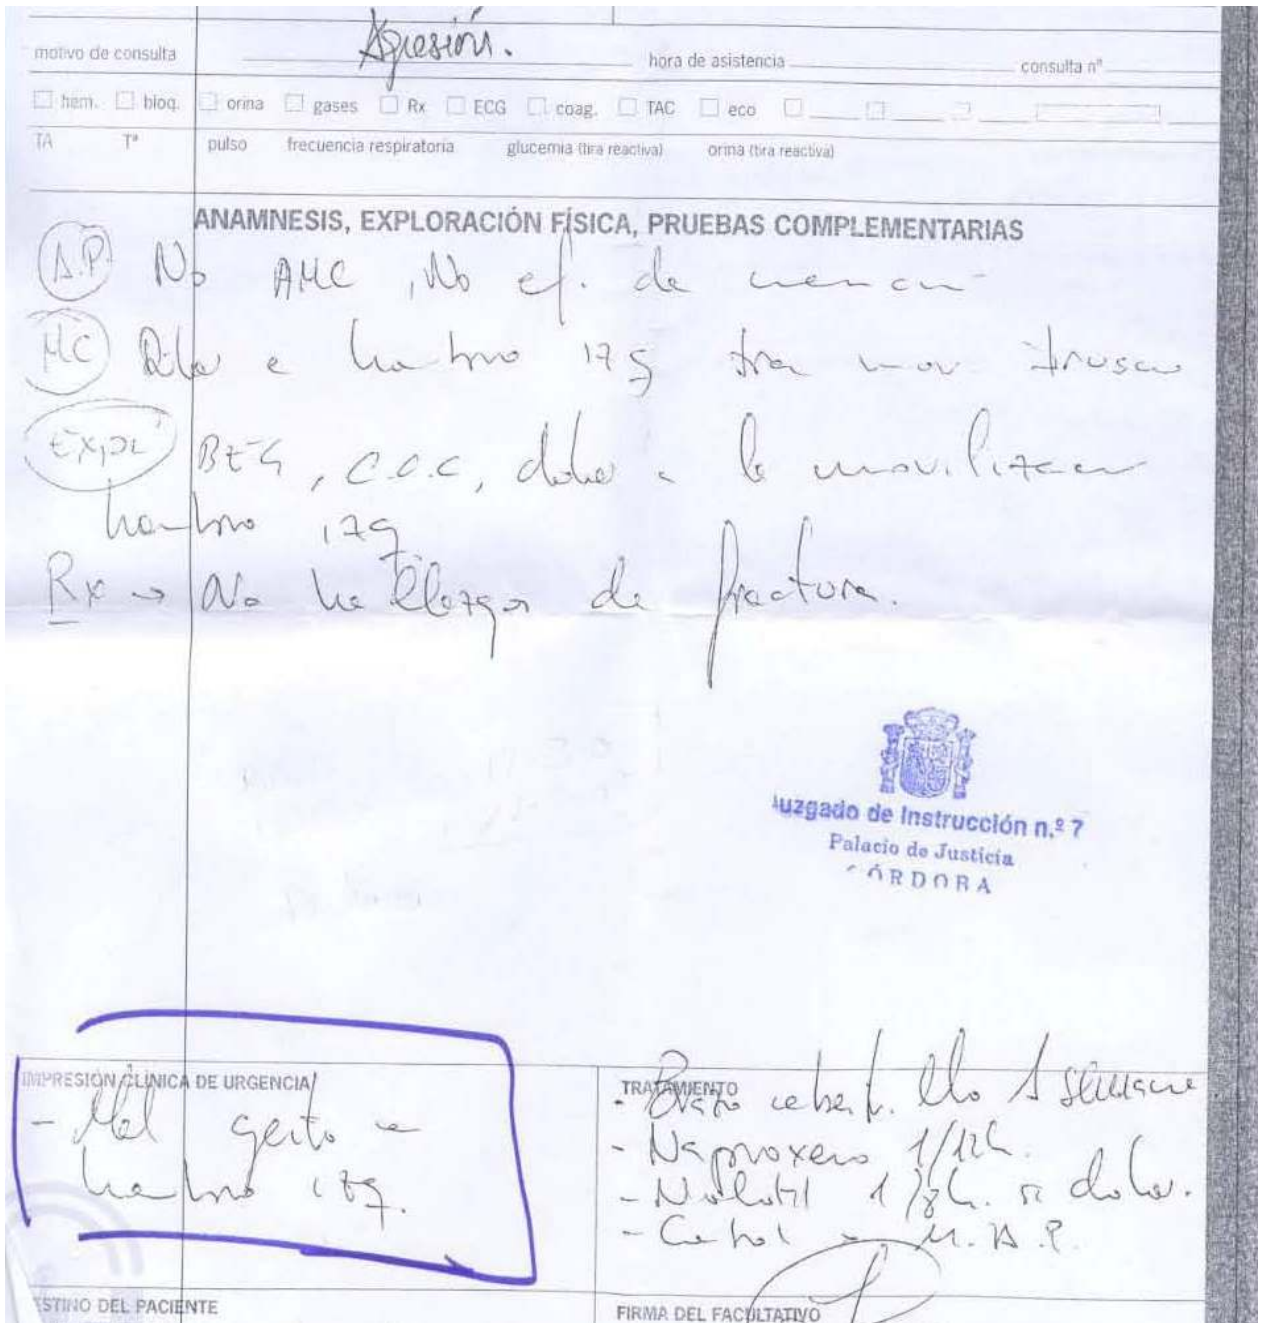 motivo de consulta Agresión. hora de asistencia consulta nº
hem. bioq. orina gases Rx ECG coag. TAC eco
TA Tª pulso frecuencia respiratoria glucemia (tira reactiva) orina (tira reactiva)
ANAMNESIS, EXPLORACIÓN FÍSICA, PRUEBAS COMPLEMENTARIAS
A.P. No AMC, No ef. de
MC Dolor e hombro izq tras mov. brusco
EXPL BEG, C.O.C, dolor a la movilizacion
hombro izq
Rx → No hallazgos de fractura.
Juzgado de Instrucción n.º 7
Palacio de Justicia
CÓRDOBA
IMPRESIÓN CLÍNICA DE URGENCIA
- Mal gesto e
hombro izq.
TRATAMIENTO
- Brazo cabest. llo 1 semana
- Naproxeno 1/12h.
- Nolotil 1/8h. si dolor.
- Control → M.A.P.
ESTINO DEL PACIENTE
FIRMA DEL FACULTATIVO